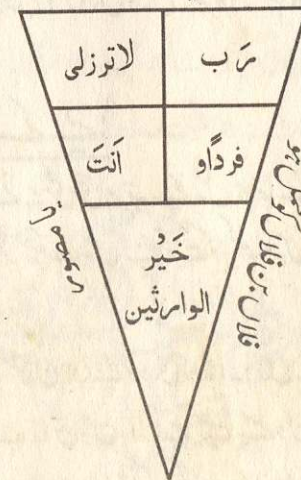 رَب لاترزلی
فرداًو اَنتَ
خَيْر
الوارثین
یا مصور
فلاں بن فلاں